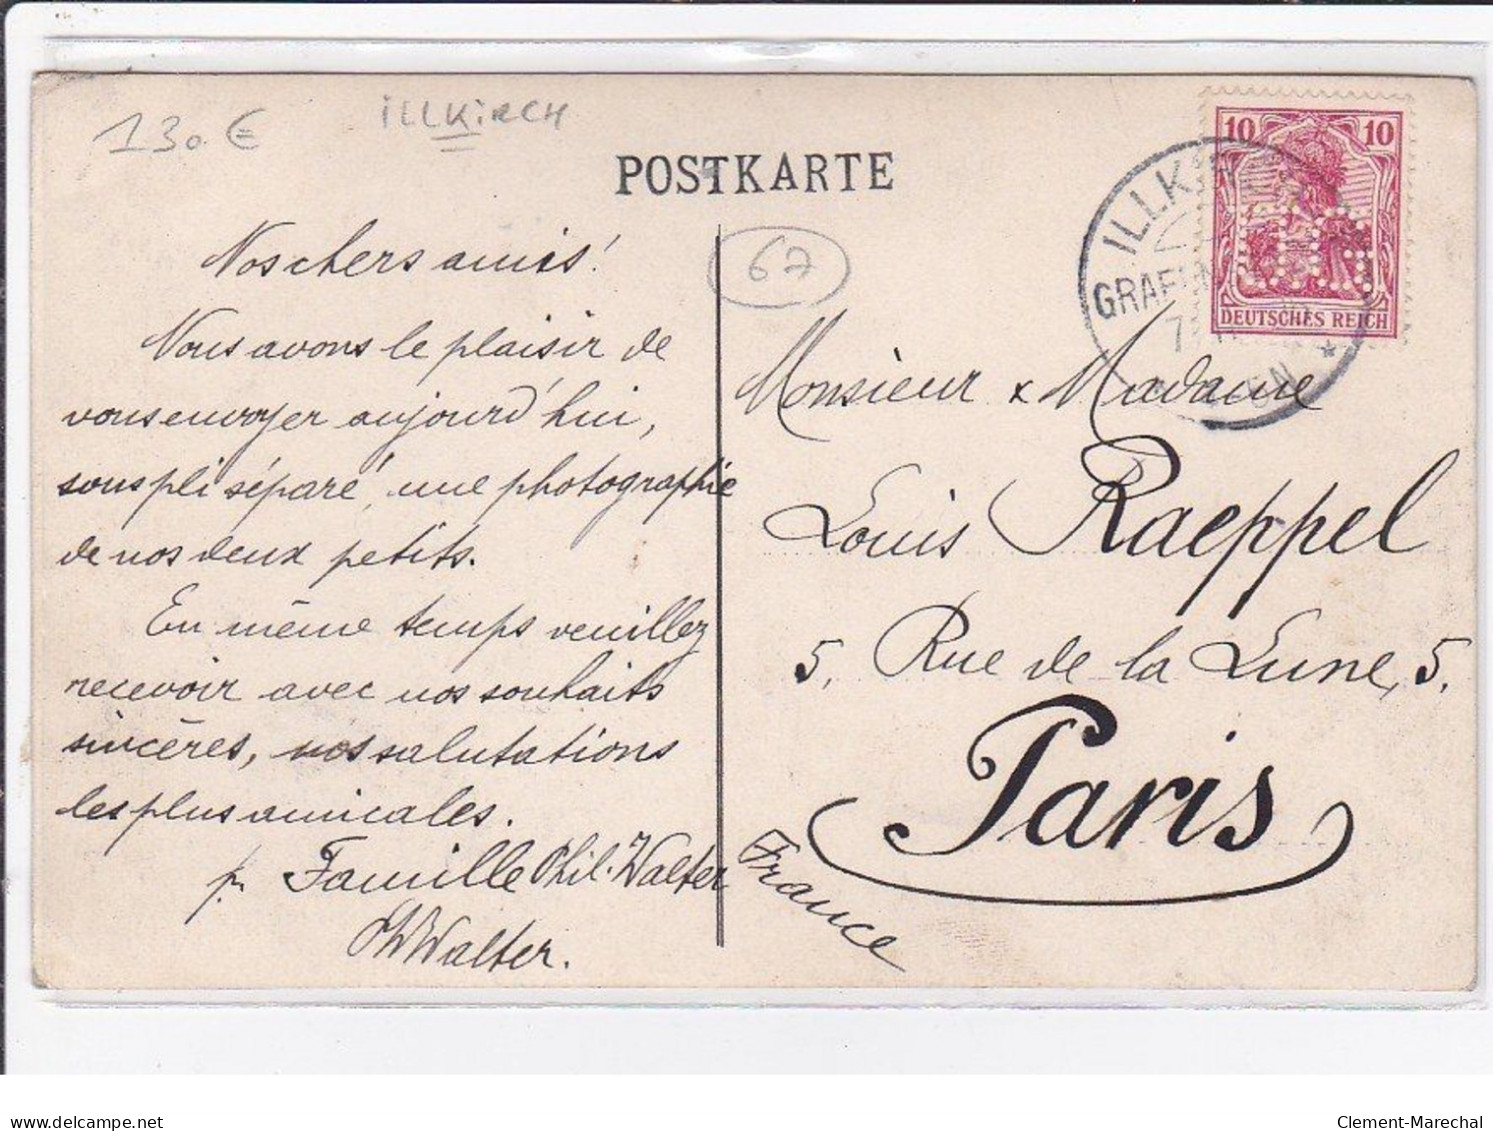 130€
ILLKIRCH
POSTKARTE
67
10 10
DEUTSCHES REICH
ILLK
GRAF
Nos chers amis!
Nous avons le plaisir de
vous envoyer aujourd'hui,
sous pli séparé, une photographie
de nos deux petits.
En même temps veuillez
recevoir avec nos souhaits
sincères, nos salutations
les plus amicales.
p. Famille Phil. Walter
Ph Walter.
Monsieur & Madame
Louis Raeppel
5, Rue de la Lune, 5.
Paris
France
www.delcampe.net
Clement-Marechal